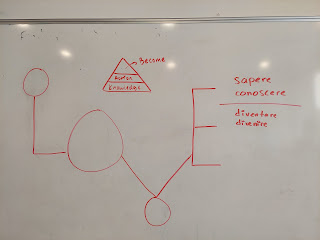 Become
Knowledge
sapere
conoscere
diventare
divenire